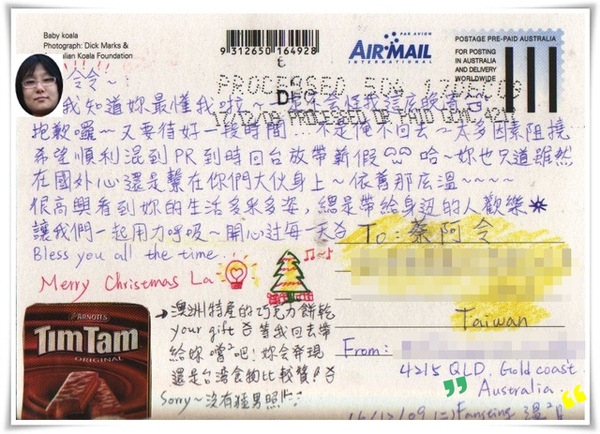 Baby koala
Photograph: Dick Marks &
Australian Koala Foundation
9 312650 164928
PAR AVION
AIR MAIL
INTERNATIONAL
POSTAGE PRE-PAID AUSTRALIA
FOR POSTING
IN AUSTRALIA
AND DELIVERY
WORLDWIDE
PROCESSED
DEC
17/12/09 PROCESSED GCMC 4211
令令~
我知道妳最懂我啦~
抱歉囉~又要待好一段時間~不是俺不回去~太多因素阻撓
希望順利混到PR到時回台放帶薪假 哈~妳也只道雖然
在國外心還是繫在你們大伙身上~依舊那底溫~~~~
很高興看到妳的生活多采多姿,總是帶給身边的人歡樂
讓我們一起用力呼吸~開心过每一天
Bless you all the time.
Merry Christmas La
To: 蔡阿令
Taiwan
From:
4215 QLD. Gold coast.
Australia.
16/12/09 (二) Fangting
ARNOTT'S
Tim Tam
ORIGINAL
→澳洲特產的巧克力餅乾
your gift 等我回去帶
給妳嚐2吧!妳会發現
還是台灣食物比較讚!
Sorry~沒有猛男照